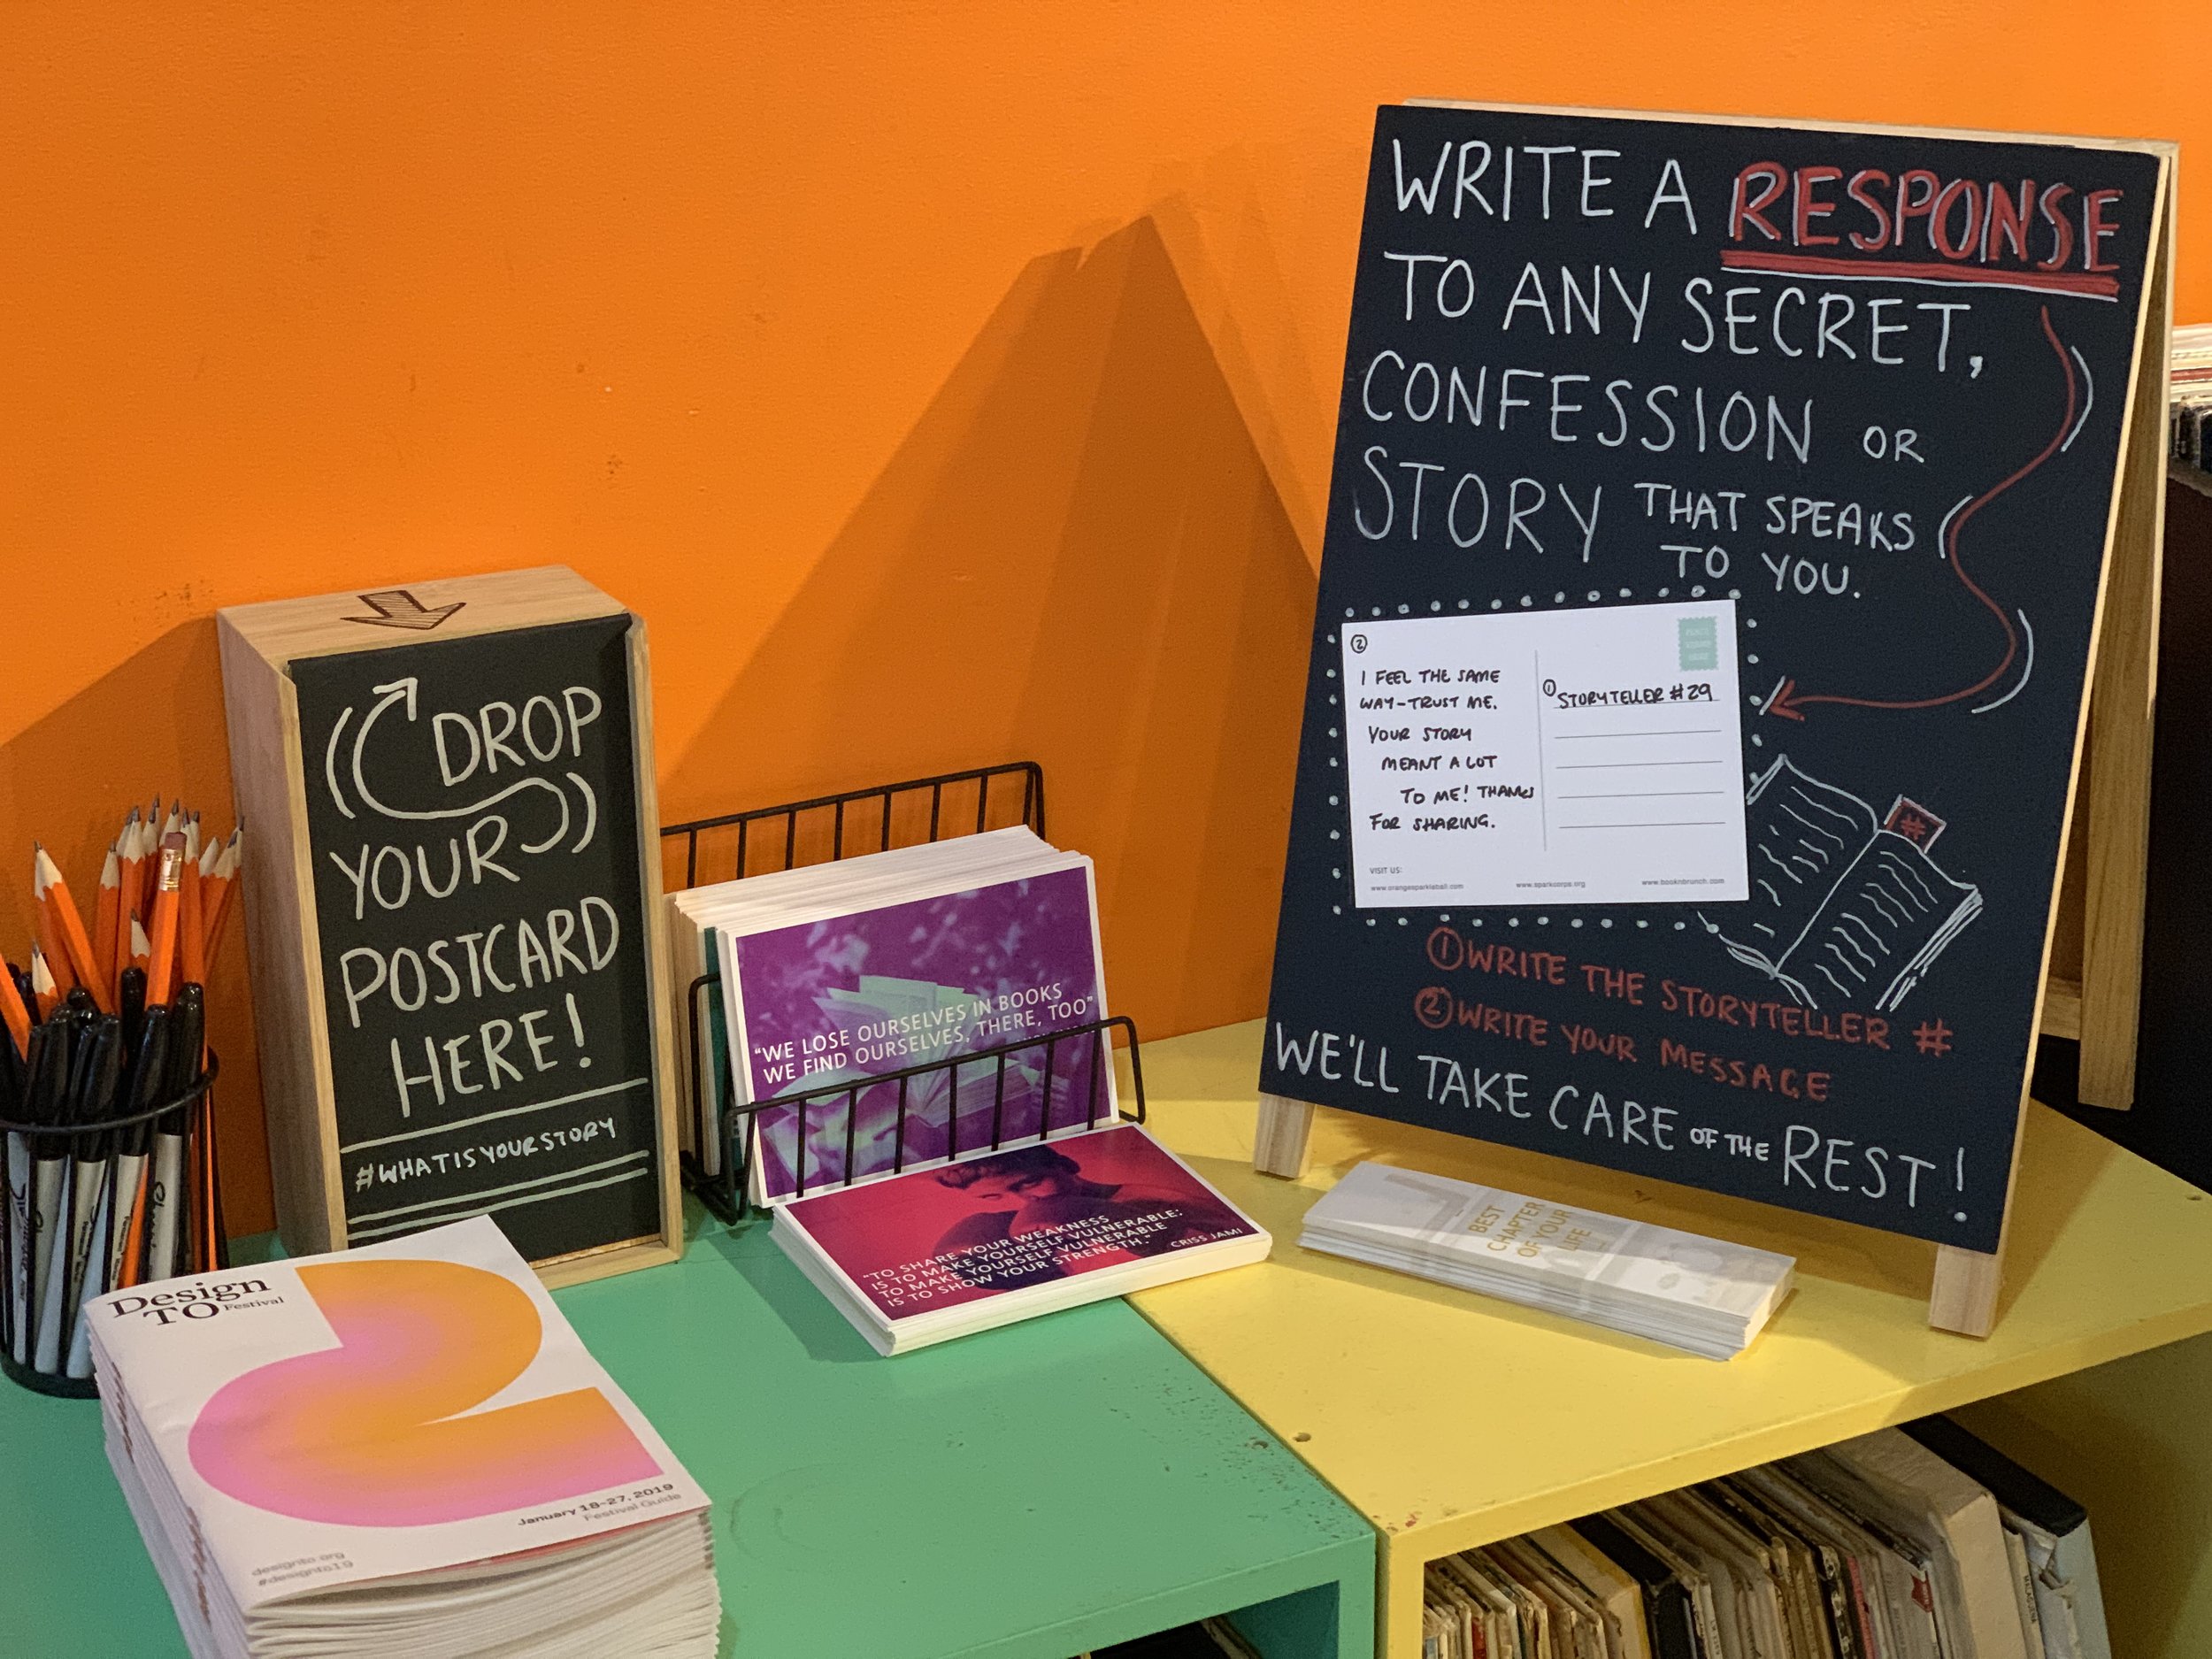 WRITE A RESPONSE
TO ANY SECRET,
CONFESSION OR
STORY THAT SPEAKS
TO YOU.
②
I FEEL THE SAME
WAY-TRUST ME.
YOUR STORY
MEANT A LOT
TO ME! THANKS
FOR SHARING.
① STORYTELLER #29
VISIT US:
www.orangesparkleball.com
www.sparkcorps.org
www.booknbrunch.com
#
① WRITE THE STORYTELLER #
② WRITE YOUR MESSAGE
WE'LL TAKE CARE OF THE REST!
DROP
YOUR
POSTCARD
HERE!
#WHATISYOURSTORY
"WE LOSE OURSELVES IN BOOKS
WE FIND OURSELVES, THERE, TOO"
"TO SHARE YOUR WEAKNESS
IS TO MAKE YOURSELF VULNERABLE;
TO MAKE YOURSELF VULNERABLE
IS TO SHOW YOUR STRENGTH."
CRISS JAMI
BEST
CHAPTER
OF YOUR
LIFE
Design
TO Festival
January 18-27, 2019
Festival Guide
designto.org
#designto19